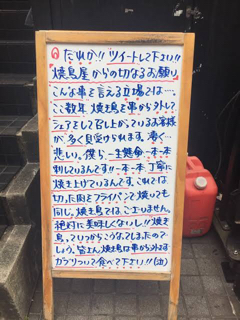 だれか!! ツイートして下さい!!
焼鳥屋からの切なるお願い
こんな事を言える立場では…。
ここ数年 焼き鳥を串から外して
シェアをして召し上がっているお客様
が多く見受けられます。凄く…
悲しい。僕ら一生懸命一本一本
刺しているんです!!一本一本丁寧に
焼き上げているんです。これでは
切った肉をフライパンで焼いても
同じ。焼き鳥では、ございません。
絶対に美味しくないし!!焼き
鳥っていつからこうなってしまったので
しょう。皆さん、焼き鳥は串から外さず
ガブリついて食べて下さい!!